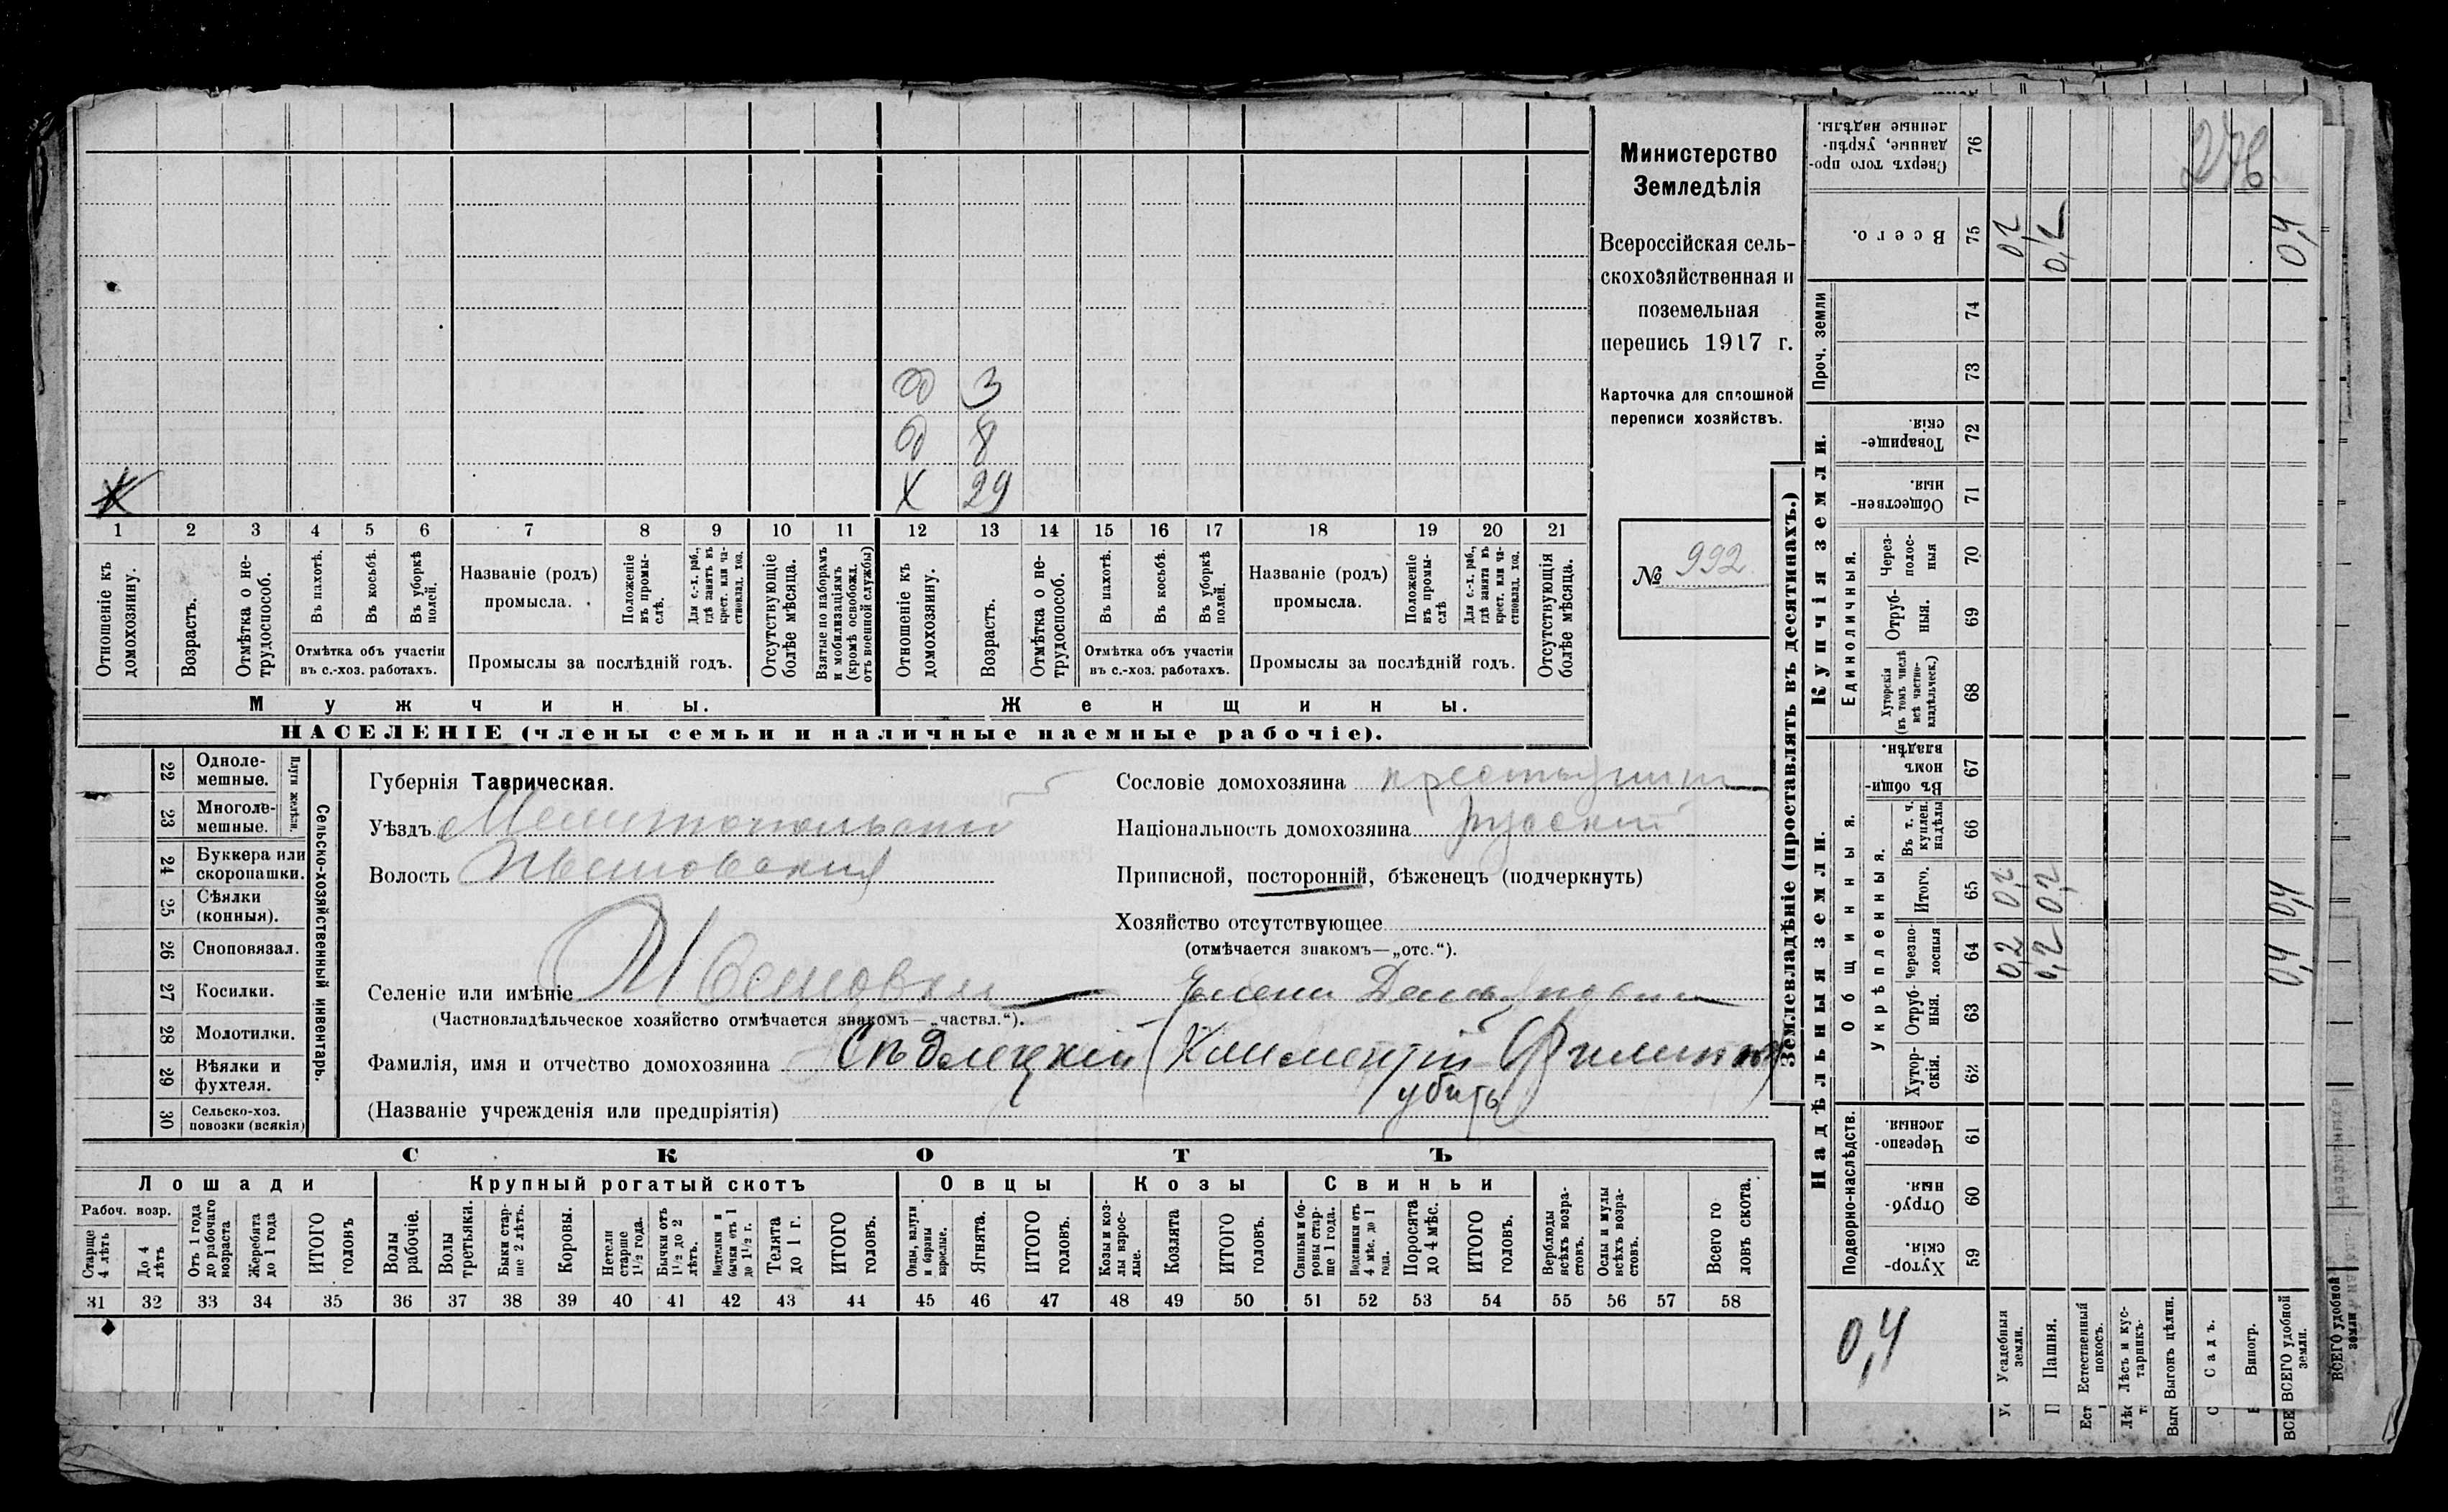 Министерство
Земледѣлія
Всероссійская сель-
скохозяйственная и
поземельная
перепись 1917 г.
Карточка для сплошной
переписи хозяйствъ.
№ 992
д 3
д 8
х 29
х
1 2 3 4 5 6 7 8 9 10 11 12 13 14 15 16 17 18 19 20 21
Отношеніе къ домохозяину.
Возрастъ.
Отмѣтка о не-
трудоспособ.
Въ пахотѣ.
Въ косьбѣ.
Въ уборкѣ полей.
Отмѣтка объ участіи
въ с.-хоз. работахъ.
Названіе (родъ)
промысла.
Положеніе въ промы-
слѣ.
Для с.-х. раб., гдѣ занятъ въ крест. или ча-
стновлад. хоз.
Промыслы за послѣдній годъ.
Отсутствующіе болѣе мѣсяца.
Взятые по наборамъ и мобилизаціямъ (кромѣ освобожд. отъ военной службы)
Отношеніе къ домохозяину.
Возрастъ.
Отмѣтка о не-
трудоспособ.
Въ пахотѣ.
Въ косьбѣ.
Въ уборкѣ полей.
Отмѣтка объ участіи
въ с.-хоз. работахъ.
Названіе (родъ)
промысла.
Положеніе въ промы-
слѣ
Для с.-х. раб., гдѣ занята въ крест. или ча-
стновлад. хоз.
Промыслы за послѣдній годъ.
Отсутствующія болѣе мѣсяца.
Мужчины.
Женщины.
НАСЕЛЕНІЕ (члены семьи и наличные наемные рабочіе).
22 Одноле-
мешные.
23 Многоле-
мешные.
Плуги желѣзн.
24 Буккера или
скоропашки.
25 Сѣялки
(конныя).
26 Сноповязал.
27 Косилки.
28 Молотилки.
29 Вѣялки и
фухтеля.
30 Сельско-хоз.
повозки (всякія)
Сельско-хозяйственный инвентарь.
Губернія Таврическая.
Уѣздъ Мелитопольскій
Волость
Селеніе или имѣніе
(Частновладѣльческое хозяйство отмѣчается знакомъ—„частвл.“).
Фамилія, имя и отчество домохозяина Климентій Филиппов
убитъ
(Названіе учрежденія или предпріятія)
Сословіе домохозяина крестьянинъ
Національность домохозяина русскій
Приписной, посторонній, бѣженецъ (подчеркнуть)
Хозяйство отсутствующее
(отмѣчается знакомъ—„отс.“).
СКОТЪ
Лошади
Крупный рогатый скотъ
Овцы
Козы
Свиньи
Рабоч. возр.
Старше 4 лѣтъ
До 4 лѣтъ
Отъ 1 года до рабочаго возраста
Жеребята до 1 года
ИТОГО головъ
Волы рабочіе.
Волы третьяки.
Быки стар-
ше 2 лѣтъ.
Коровы.
Нетели старше 1½ года.
Бычки отъ 1½ до 2 лѣтъ.
Нетелки и бычки отъ 1 до 1½ г.
Телята до 1 г.
ИТОГО головъ.
Овцы, валухи и бараны взрослые.
Ягнята.
ИТОГО головъ.
Козы и коз-
лы взрос-
лые.
Козлята
ИТОГО головъ.
Свиньи и бо-
ровы стар-
ше 1 года.
Подсвинки отъ 4 мѣс. до 1 года.
Поросята до 4 мѣс.
ИТОГО головъ.
Верблюды всѣхъ возра-
стовъ.
Ослы и мулы всѣхъ возра-
стовъ.
Всего го
ловъ скота.
31 32 33 34 35 36 37 38 39 40 41 42 43 44 45 46 47 48 49 50 51 52 53 54 55 56 57 58
Землевладѣніе (проставлять въ десятинахъ.)
Купчія земли.
Надѣльныя земли.
Проч. земли
Сверхъ того про-
данные, укрѣп-
ленные надѣлы.
76
Всего.
75 0,2 0,2 0,4
74
73
Товарище-
скія.
72
Обществен-
ныя.
71
Единоличныя.
Через-
полос-
ныя
70
Отруб-
ныя.
69
Хуторскія
(въ томъ числѣ
всѣ частно-
владѣльческ.)
68
Общинныя.
Въ общин-
номъ
владѣн.
67
Укрѣпленныя.
Въ т. ч.
куплен.
надѣлы
66
Итого.
65 0,2 0,2 0,4
Черезпо-
лосныя
64 0,2 0,2 0,4
Отруб-
ныя.
63
Хутор-
скія.
62
Подворно-наслѣдств.
Черезпо-
лосныя.
61
Отруб-
ныя.
60
Хутор-
скія.
59
0,4
Усадебныя земли.
Пашня.
Естественный покосъ.
Лѣсъ и кус-
тарникъ.
Выгонъ цѣлин.
Садъ.
Виногр.
ВСЕГО удобной земли.
ВСЕГО удобной земли